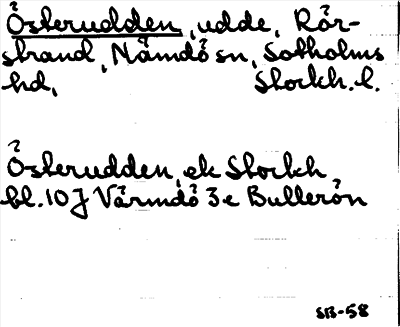 Österudden, udde, Rör-
strand, Nämdö sn, Sotholms
hd, Stockh. l.
Österudden, ek Stockh
bl. 10 J Värmdö 3e Bullerön
SB-58